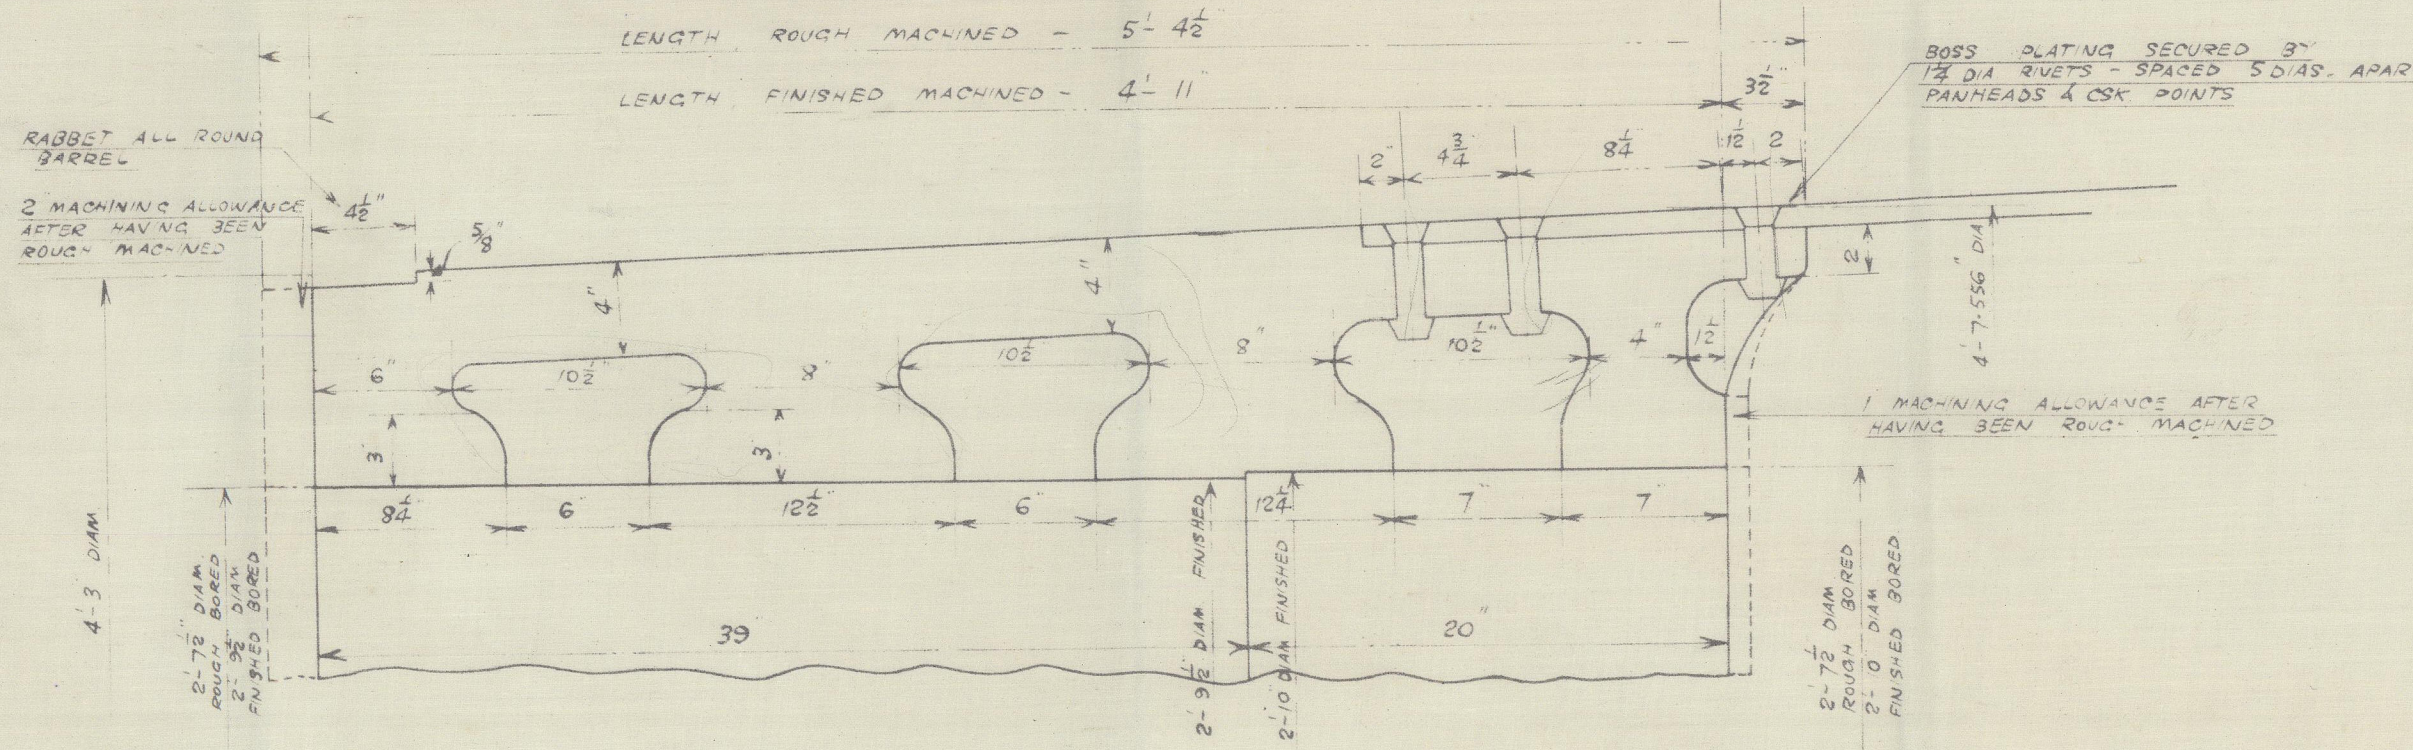 LENGTH ROUGH MACHINED - 5'- 4 1/2"
LENGTH FINISHED MACHINED - 4'- 11"
BOSS PLATING SECURED BY
1 1/4" DIA RIVETS - SPACED 5 DIAS. APAR
PANHEADS & CSK. POINTS
3 1/2"
RABBET ALL ROUND
BARREL
2" 4 3/4" 8 1/4" 1 1/2" 2"
2" MACHINING ALLOWANCE
AFTER HAVING BEEN
ROUGH MACHINED
4 1/2"
5/8"
4"
4"
2"
4'- 7.556" DIA
6" 10 1/2" 8" 10 1/2" 8" 10 1/2" 4" 1 1/2"
3"
3"
1" MACHINING ALLOWANCE AFTER
HAVING BEEN ROUGH MACHINED
8 1/4" 6" 12 1/2" 6" 12 1/4" 7" 7"
4'-3" DIAM
2'-7 1/2" DIAM.
ROUGH BORED
2'-9 1/2" DIAM
FINISHED BORED
39"
2'-9 1/2" DIAM FINISHED
2'-10" DIAM FINISHED
20"
2'-7 1/2" DIAM
ROUGH BORED
2'-10" DIAM
FINISHED BORED